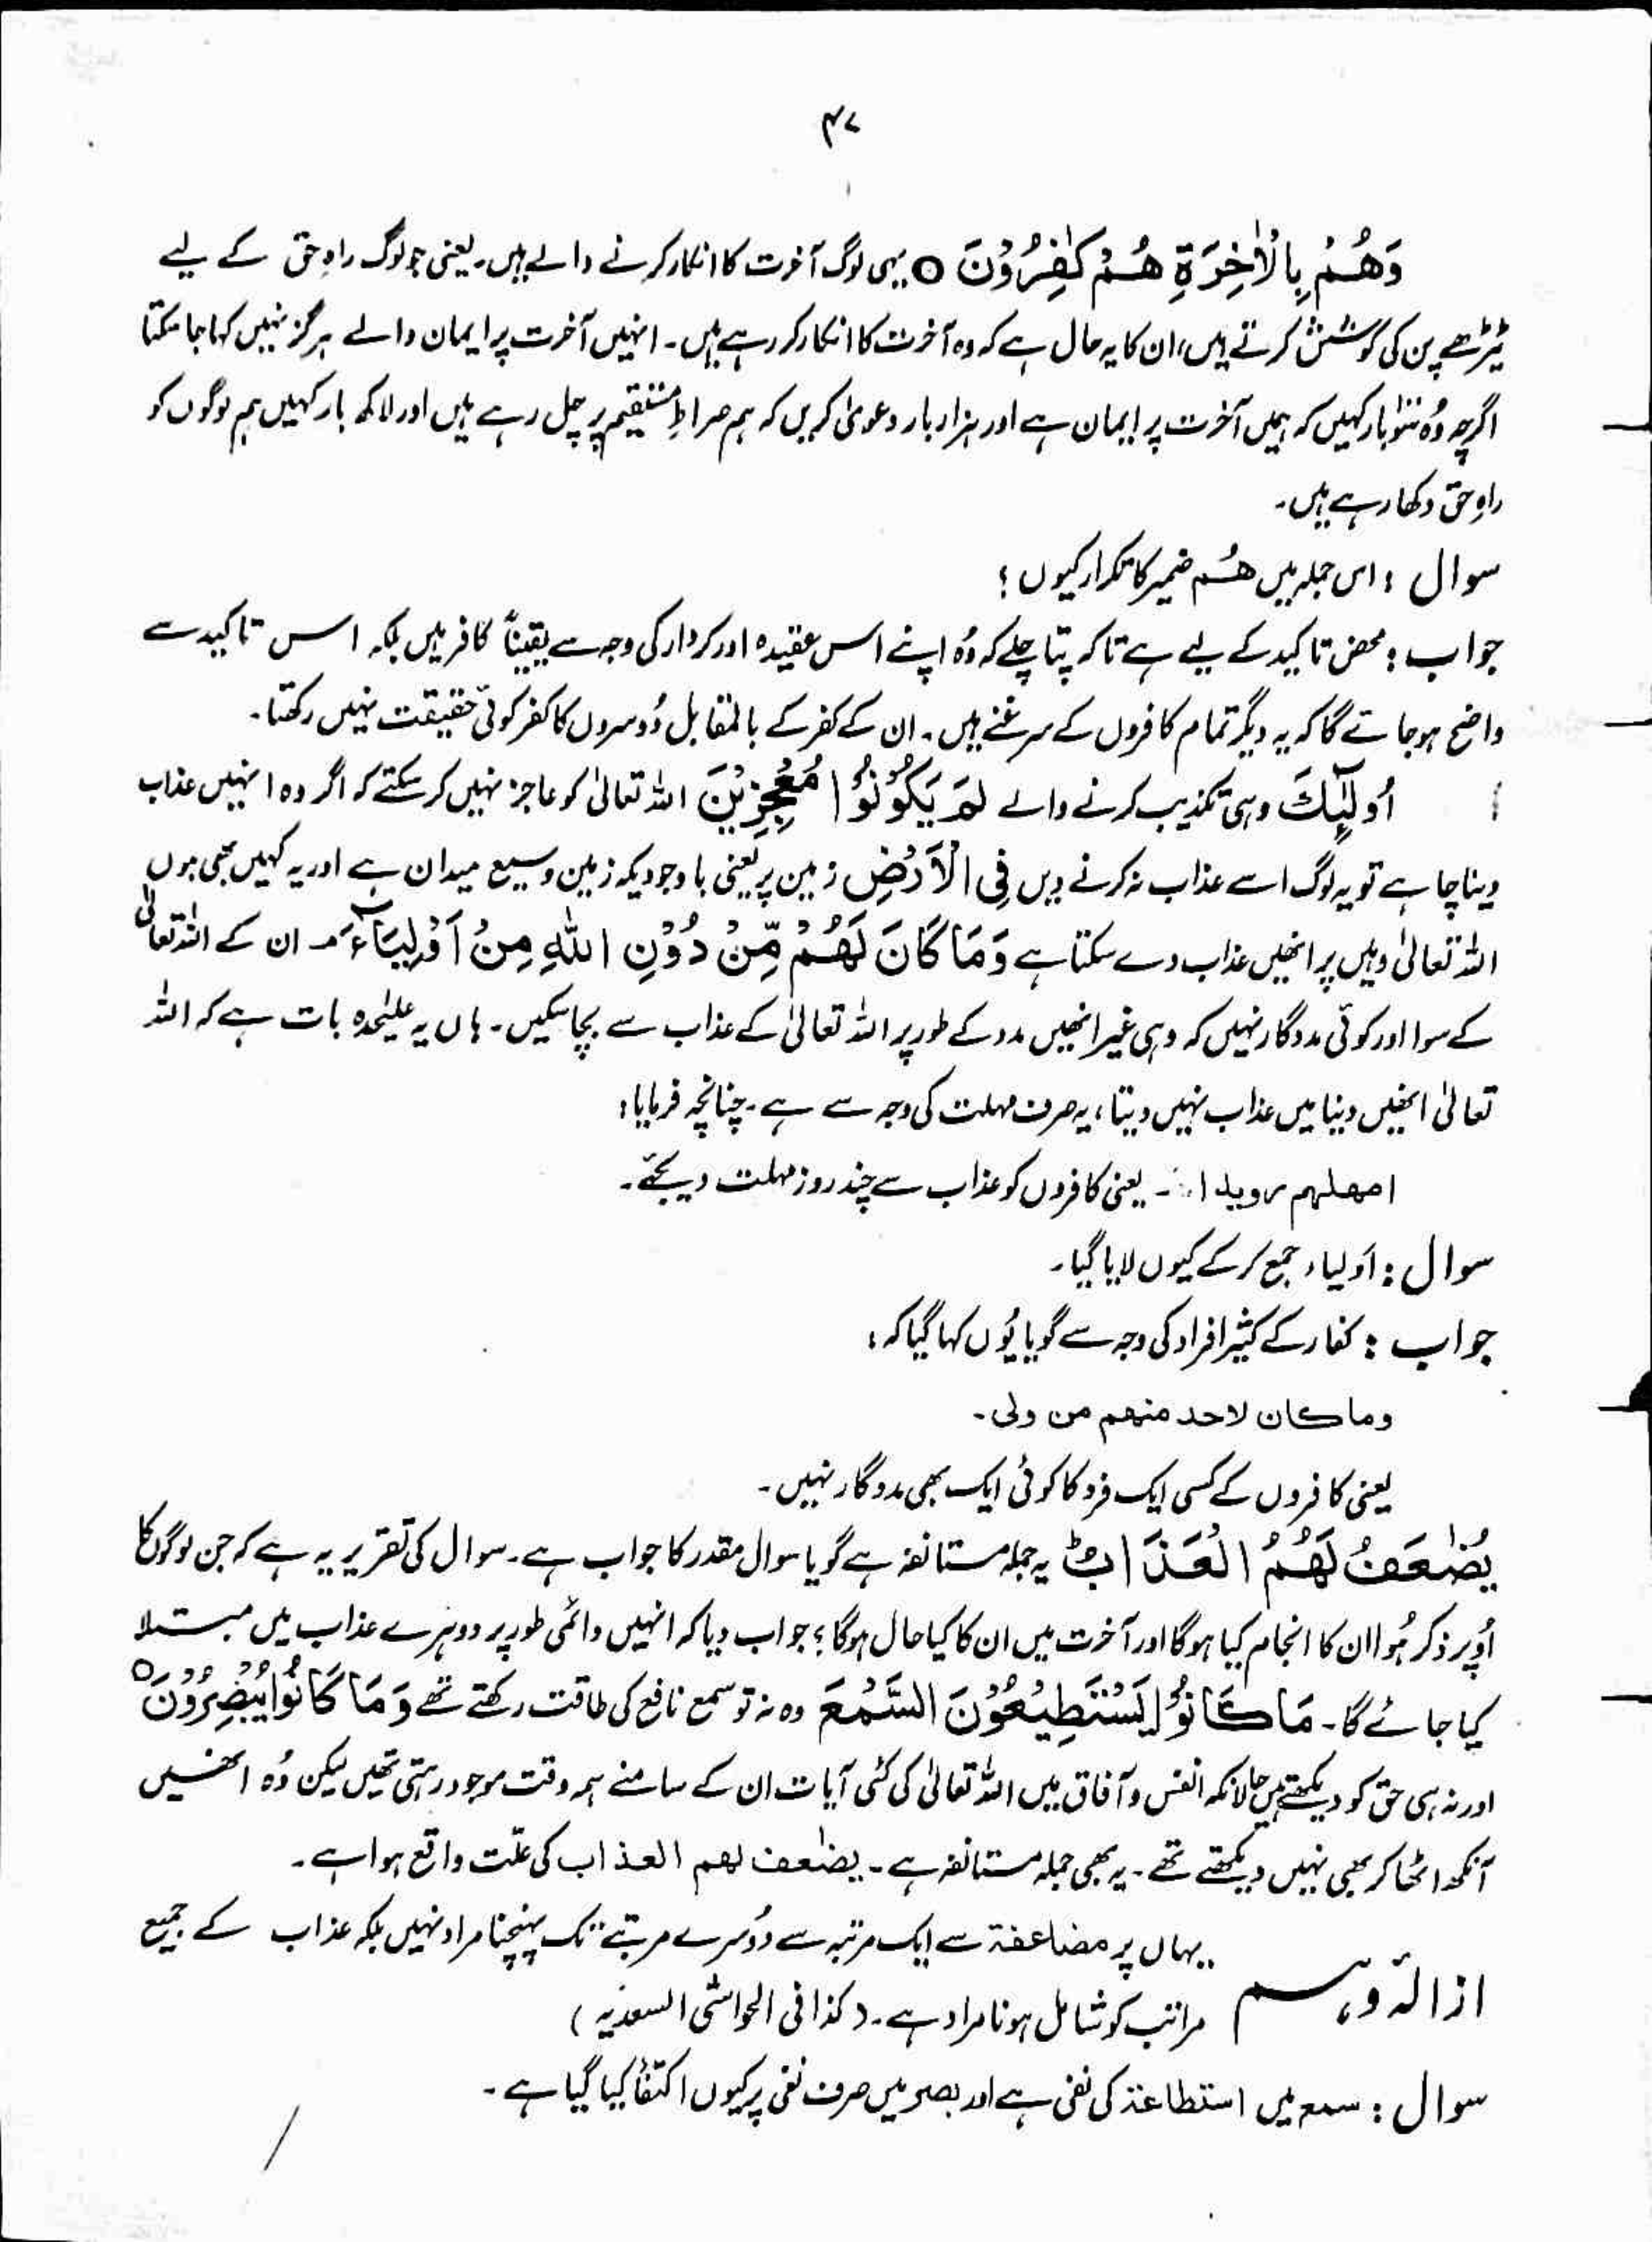 ۴۷
وَهُمْ بِالْاٰخِرَةِ هُمْ كٰفِرُوْنَ ○ یہی لوگ آخرت کا انکار کرنے والے ہیں۔ یعنی جو لوگ راہِ حق کے لیے
ٹیڑھے پن کی کوشش کرتے ہیں، ان کا یہ حال ہے کہ وہ آخرت کا انکار کر رہے ہیں۔ انہیں آخرت پر ایمان والے ہرگز نہیں کہا جا سکتا
اگرچہ وُہ سَو بار کہیں کہ ہمیں آخرت پر ایمان ہے اور ہزار بار دعویٰ کریں کہ ہم صراطِ مستقیم پر چل رہے ہیں اور لاکھ بار کہیں ہم لوگوں کو
راہِ حق دکھا رہے ہیں۔
سوال : اس جملہ میں ھُم ضمیر کا تکرار کیوں ؟
جواب : محض تاکید کے لیے ہے تاکہ پتا چلے کہ وُہ اپنے اس عقیدہ اور کردار کی وجہ سے یقیناً کافر ہیں بلکہ اس تاکید سے
واضح ہو جائے گا کہ یہ دیگر تمام کافروں کے سرغنے ہیں۔ ان کے کفر کے بالمقابل دُوسروں کا کفر کوئی حقیقت نہیں رکھتا۔
اُولٰٓئِكَ وہی تکذیب کرنے والے لَمْ يَكُوْنُوْا مُعْجِزِيْنَ اللہ تعالیٰ کو عاجز نہیں کر سکتے کہ اگر وہ انہیں عذاب
دینا چاہے تو یہ لوگ اسے عذاب نہ کرنے دیں فِی الْاَرْضِ زمین پر یعنی باوجودیکہ زمین وسیع میدان ہے اور یہ کہیں بھی ہوں
اللہ تعالیٰ وہیں پر انھیں عذاب دے سکتا ہے وَمَا كَانَ لَهُمْ مِّنْ دُوْنِ اللّٰهِ مِنْ اَوْلِيَآءَ ۘ ان کے اللہ تعالیٰ
کے سوا اور کوئی مددگار نہیں کہ وہی غیر انھیں مدد کے طور پر اللہ تعالیٰ کے عذاب سے بچا سکیں۔ ہاں یہ علیٰحدہ بات ہے کہ اللہ
تعالیٰ انھیں دینا میں عذاب نہیں دیتا، یہ صرف مہلت کی وجہ سے ہے۔ چنانچہ فرمایا :
امهلهم رويدا۔ یعنی کافروں کو عذاب سے چند روز مہلت دیجئے۔
سوال : اَولیاء جمع کر کے کیوں لایا گیا۔
جواب : کفار کے کثیر افراد کی وجہ سے گویا یُوں کہا گیا کہ :
وما كان لاحد منهم من ولى۔
یعنی کافروں کے کسی ایک فرد کا کوئی ایک بھی مددگار نہیں۔
يُضٰعَفُ لَهُمُ الْعَذَابُ ؕ یہ جملہ مستانفہ ہے گویا سوال مقدر کا جواب ہے۔ سوال کی تقریر یہ ہے کہ جن لوگوں کا
اُوپر ذکر ہُوا ان کا انجام کیا ہوگا اور آخرت میں ان کا کیا حال ہوگا ؟ جواب دیا کہ انہیں دائمی طور پر دوہرے عذاب میں مبتلا
کیا جائے گا۔ مَا كَانُوْا يَسْتَطِيْعُوْنَ السَّمْعَ وہ نہ تو سمع نافع کی طاقت رکھتے تھے وَمَا كَانُوْا يُبْصِرُوْنَ ○
اور نہ ہی حق کو دیکھتے ہیں حالانکہ انفس و آفاق میں اللہ تعالیٰ کی کئی آیات ان کے سامنے ہمہ وقت موجود رہتی تھیں لیکن وُہ انھیں
آنکھ اٹھا کر بھی نہیں دیکھتے تھے۔ یہ بھی جملہ مستانفہ ہے۔ يضٰعف لهم العذاب کی علّت واقع ہوا ہے۔
یہاں پر مضاعفۃ سے ایک مرتبہ سے دُوسرے مرتبے تک پہنچنا مراد نہیں بلکہ عذاب کے جمیع
ازالۂ وہم مراتب کو شامل ہونا مراد ہے۔ (کذا فی الحواشی السعدیہ)
سوال : سمع میں استطاعۃ کی نفی ہے اور بصر میں صرف نفی پر کیوں اکتفأ کیا گیا ہے۔